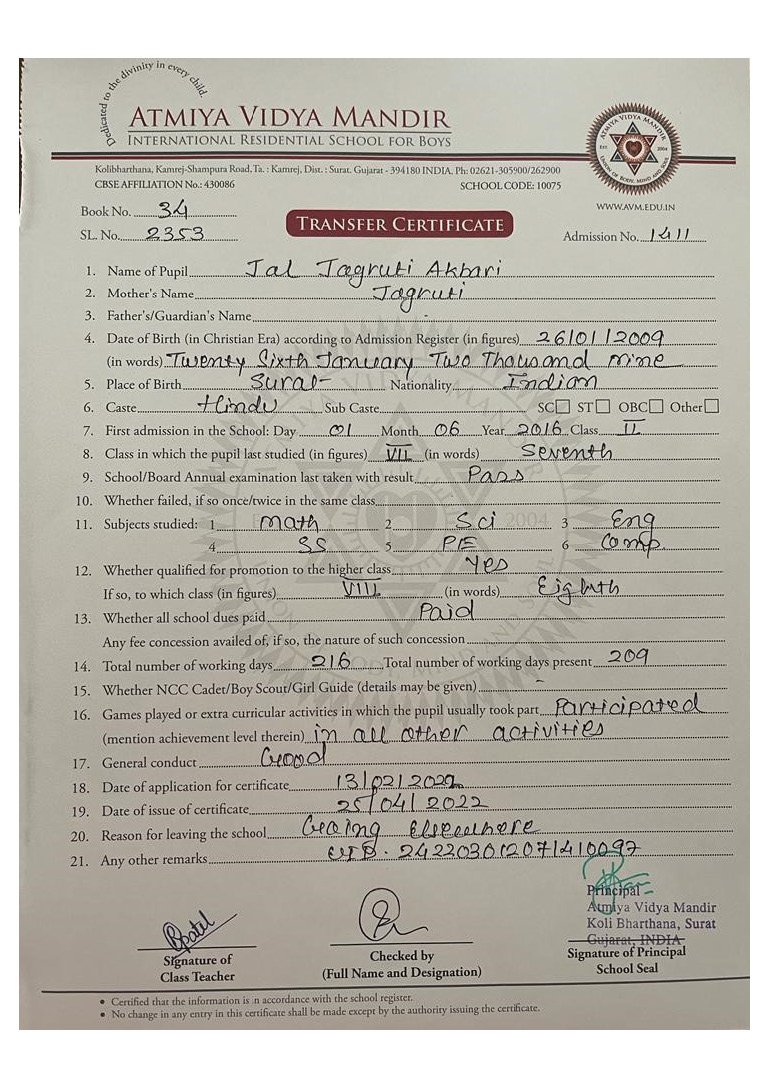 Dedicated to the divinity in every child.
ATMIYA VIDYA MANDIR
INTERNATIONAL RESIDENTIAL SCHOOL FOR BOYS
ATMIYA VIDYA MANDIR
EST 2004
UNION OF BODY, MIND AND SOUL
Kolibharthana, Kamrej-Shampura Road, Ta. : Kamrej, Dist. : Surat. Gujarat - 394180 INDIA. Ph: 02621-305900/262900
CBSE AFFILIATION No.: 430086 SCHOOL CODE: 10075
WWW.AVM.EDU.IN
Book No. 34
TRANSFER CERTIFICATE
SL. No. 2353 Admission No. 1411
1. Name of Pupil Jal Jagruti Akbari
2. Mother's Name Jagruti
3. Father's/Guardian's Name
4. Date of Birth (in Christian Era) according to Admission Register (in figures) 26/01/2009
(in words) Twenty Sixth January Two Thousand nine
5. Place of Birth Surat Nationality Indian
6. Caste Hindu Sub Caste SC ST OBC Other
7. First admission in the School: Day 01 Month 06 Year 2016 Class II
8. Class in which the pupil last studied (in figures) VII (in words) Seventh
9. School/Board Annual examination last taken with result Pass
10. Whether failed, if so once/twice in the same class
11. Subjects studied: 1 math 2 Sci 3 Eng
4 SS 5 PE 6 Comp.
12. Whether qualified for promotion to the higher class Yes
If so, to which class (in figures) VIII (in words) Eighth
13. Whether all school dues paid Paid
Any fee concession availed of, if so, the nature of such concession
14. Total number of working days 216 Total number of working days present 209
15. Whether NCC Cadet/Boy Scout/Girl Guide (details may be given) -
16. Games played or extra curricular activities in which the pupil usually took part Participated
(mention achievement level therein) in all other activities
17. General conduct Good
18. Date of application for certificate 13/02/2022
19. Date of issue of certificate 25/04/2022
20. Reason for leaving the school Going Elsewhere
21. Any other remarks 242203012071410097
Principal
Atmiya Vidya Mandir
Koli Bharthana, Surat
Gujarat, INDIA
Bpatel
Signature of
Class Teacher
Checked by
(Full Name and Designation)
Signature of Principal
School Seal
• Certified that the information is in accordance with the school register.
• No change in any entry in this certificate shall be made except by the authority issuing the certificate.